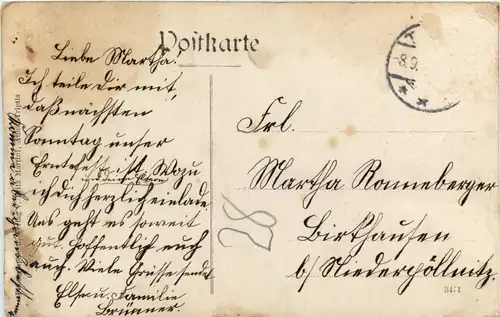 Postkarte
Liebe Martha!
Ich teile Dir mit,
daß nächsten
Sonntag unser
Erntefest ist. Wozu
ich dich herzlich einlade
Uns geht es soweit
gut. Hoffentlich euch
auch. Viele Grüsse sendet
Else u. Familie
Brünner.
8.9.
Frl.
Martha Ronneberger
Birkhausen
b/ Niederpöllnitz.
28